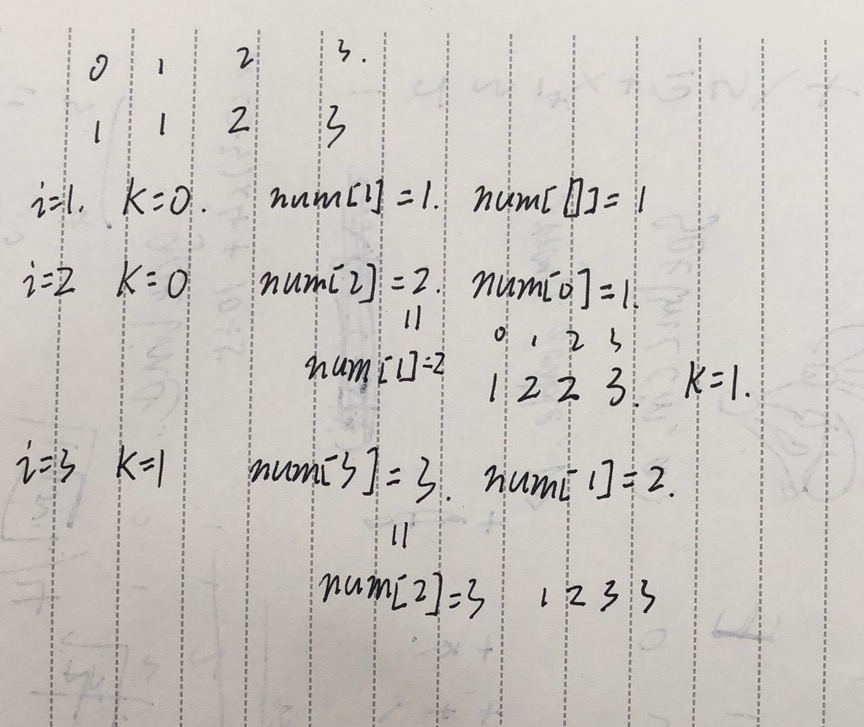 0 1 2 3.
1 1 2 3
i=1. k=0. num[1]=1. num[]=1
i=2 k=0 num[2]=2. num[0]=1.
||
0 1 2 3
num[1]=2 1 2 2 3. k=1.
i=3 k=1 num[3]=3. num[1]=2.
||
num[2]=3 1 2 3 3